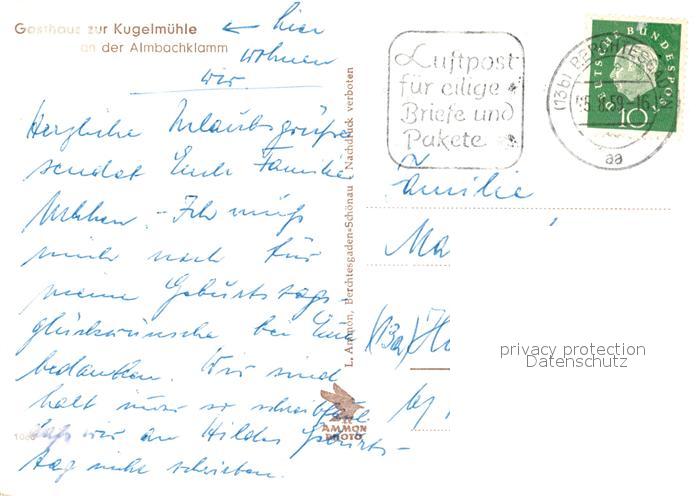 Gasthaus zur Kugelmühle
an der Almbachklamm
← hier
wohnen
wir.
Herzliche Urlaubsgrüße
sendet Euch Familie
. - Ich muß
mich noch für
meine Geburtstags-
glückwünsche bei Euch
bedanken. Wir sind
halt immer so schreibfaul
daß wir an Hildes Geburts-
tag nicht schrieben.
L. Ammon, Berchtesgaden-Schönau Nachdruck verboten
AMMON
PHOTO
Luftpost
für eilige
Briefe und
Pakete
(13b) BERCHTESGADEN
-5.8.59-16
aa
DEUTSCHE BUNDESPOST
10
Familie
Ma
(13a)
privacy protection
Datenschutz